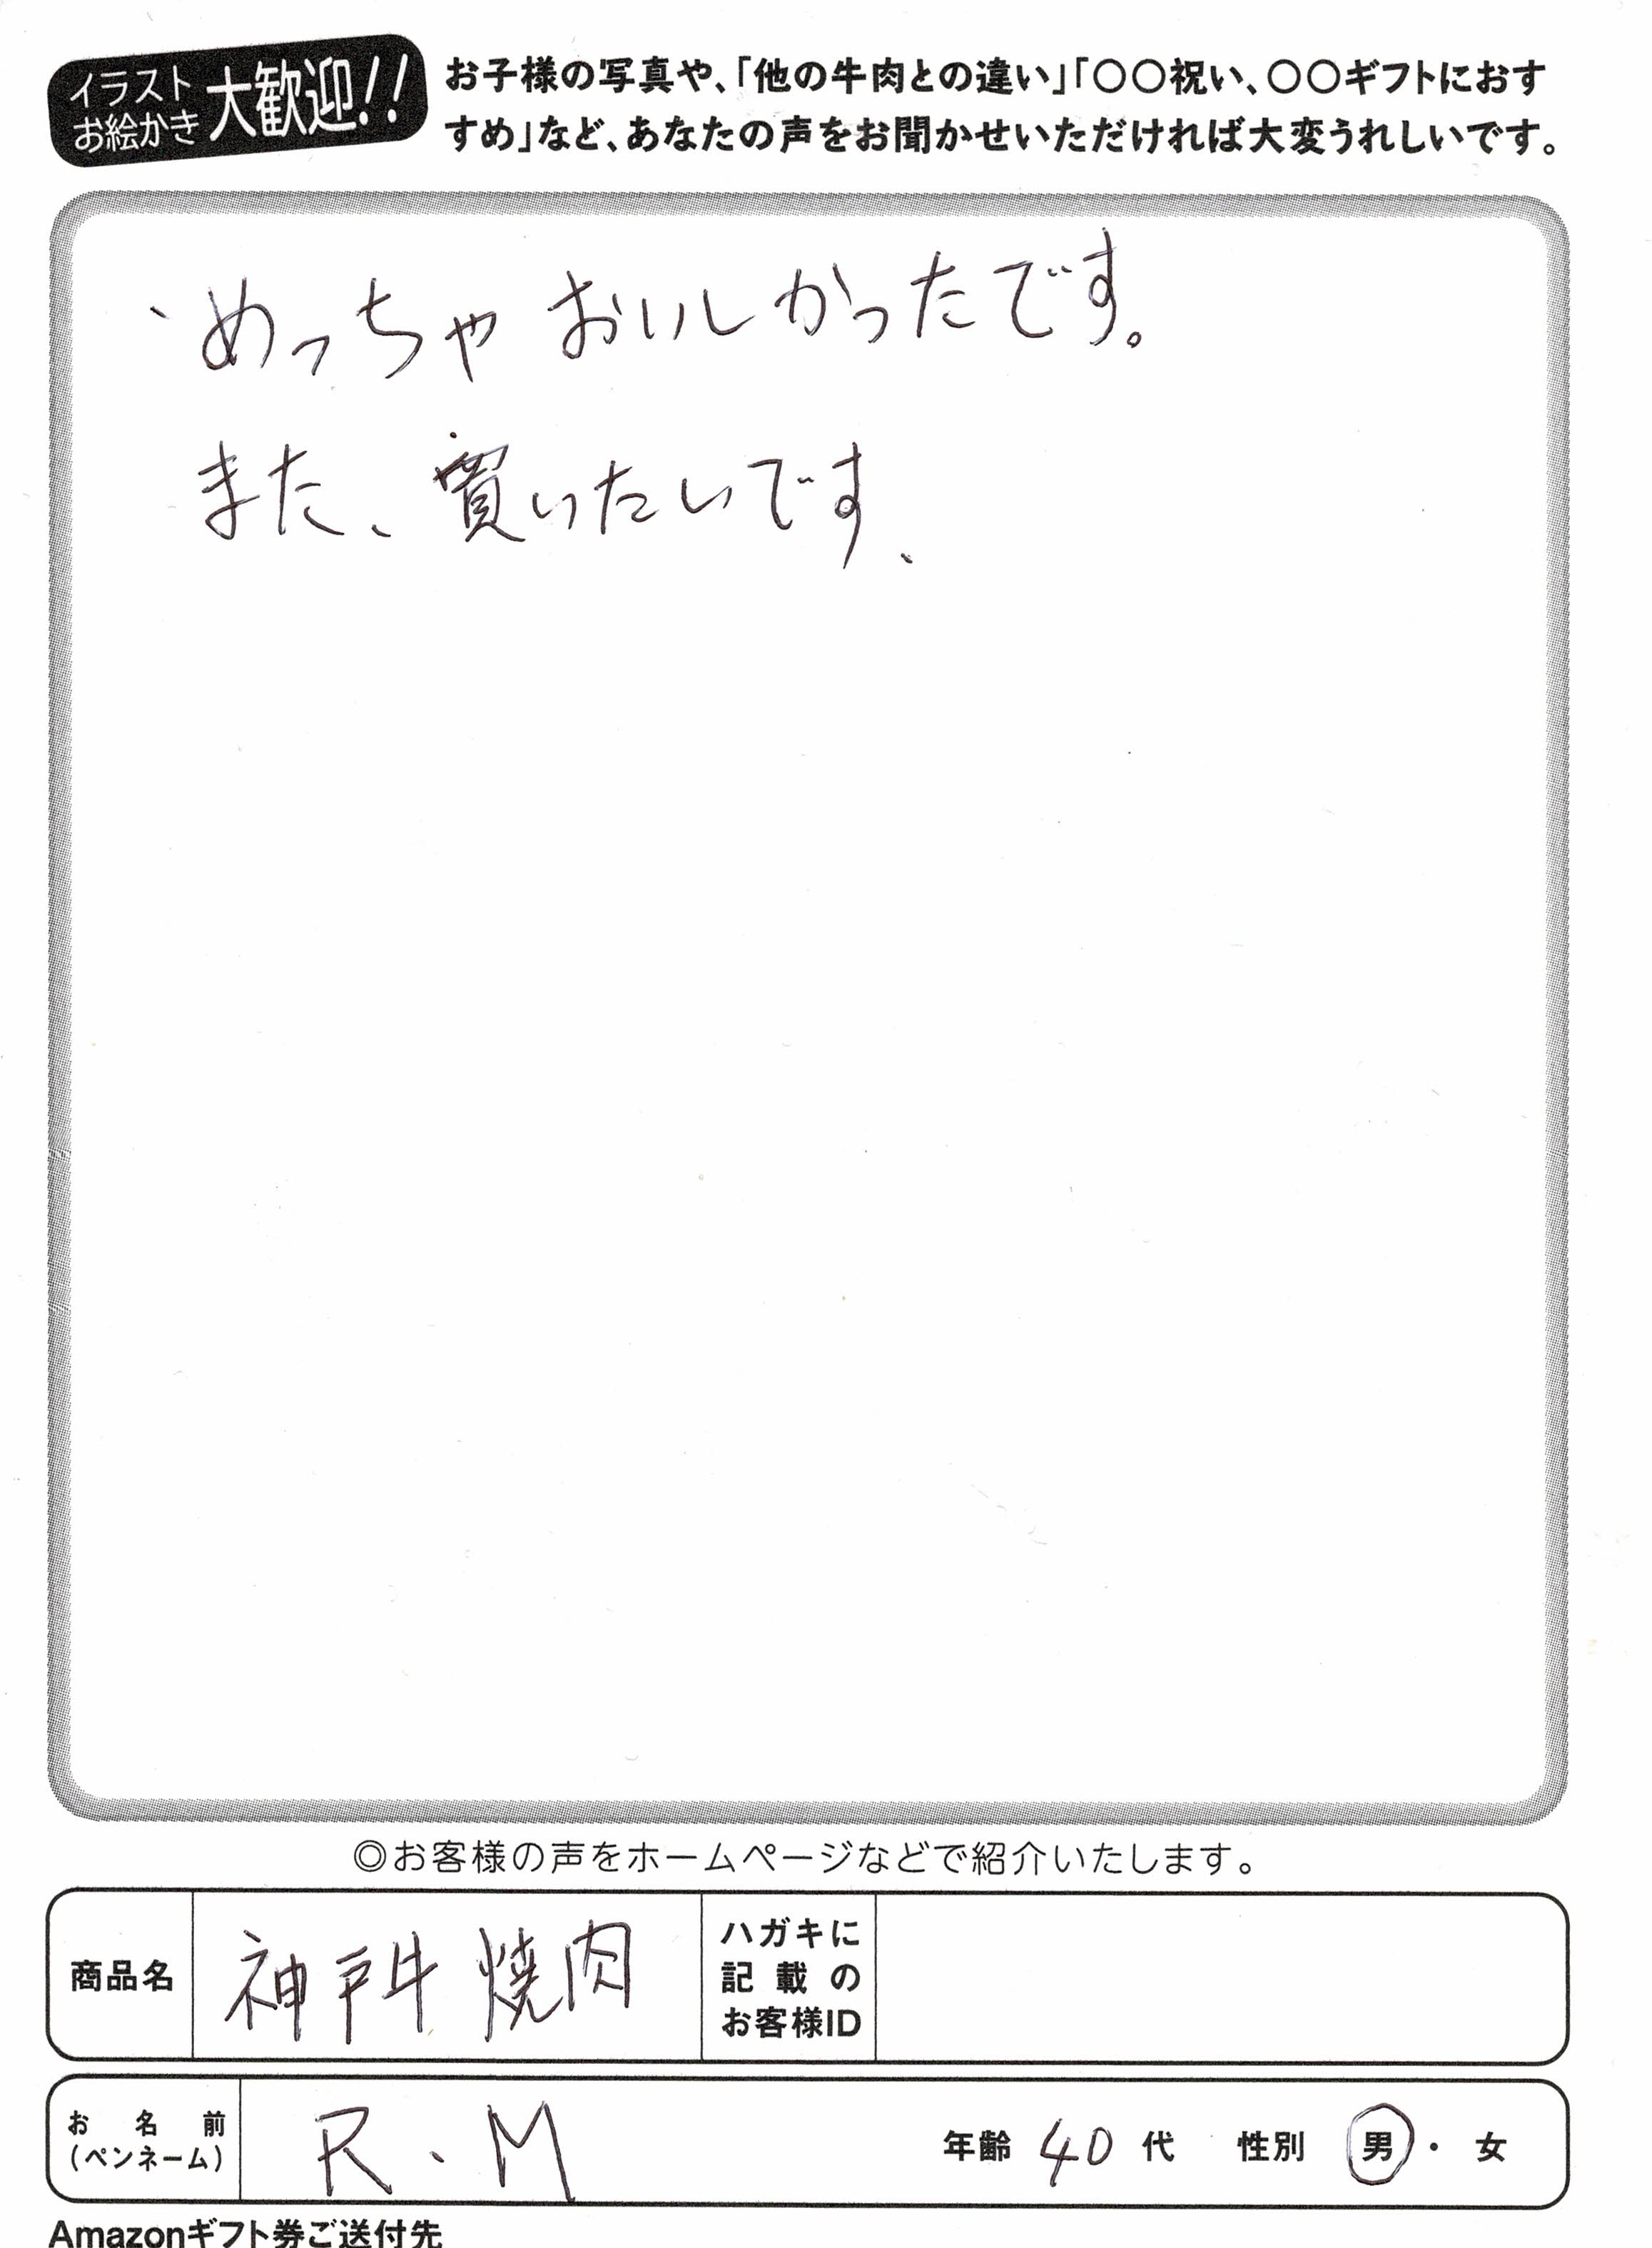 イラスト
お絵かき
大歓迎!!
お子様の写真や、「他の牛肉との違い」「〇〇祝い、〇〇ギフトにおす
すめ」など、あなたの声をお聞かせいただければ大変うれしいです。
めっちゃ おいしかったです。
また、買いたいです、
◎お客様の声をホームページなどで紹介いたします。
商品名 神戸牛 焼肉
ハガキに
記載の
お客様ID
お名前
(ペンネーム)
R、M 年齢 40 代 性別 男・女
Amazonギフト券ご送付先